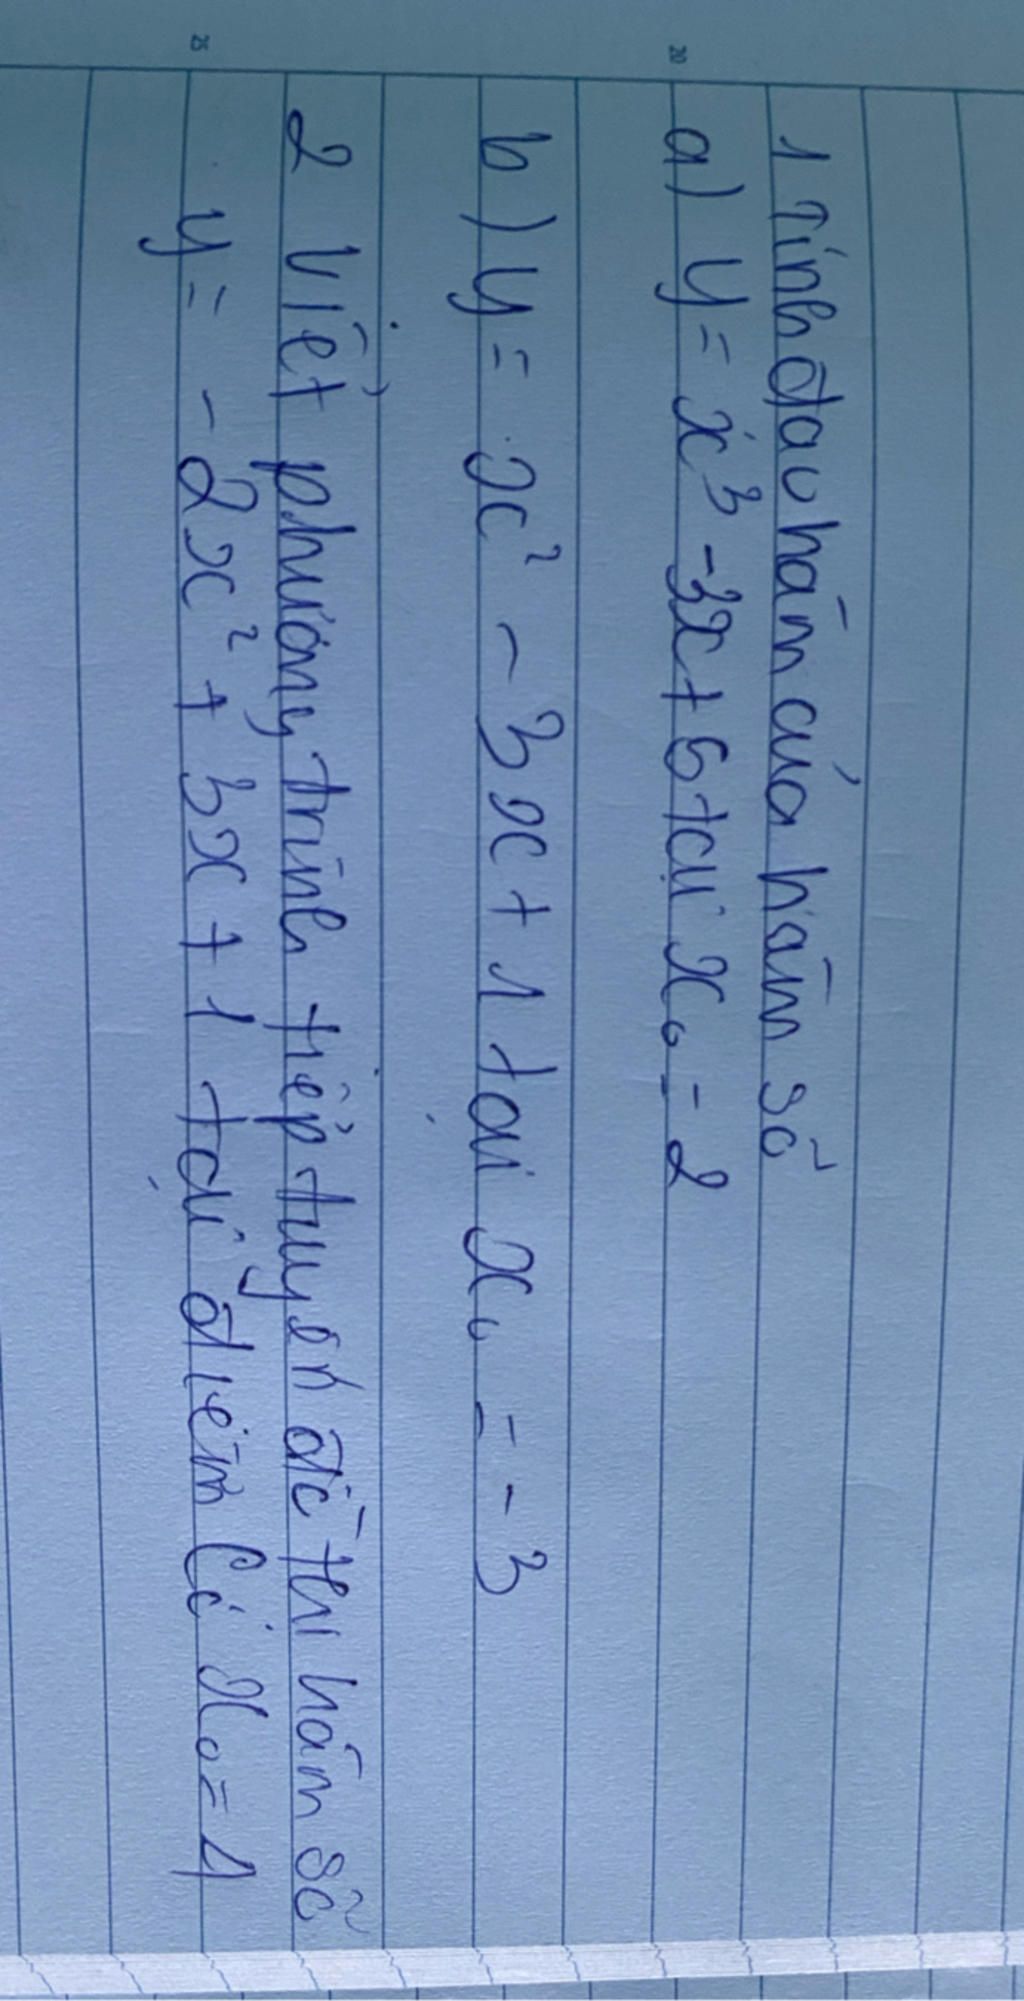 1 Tính đạo hàm của hàm số
a) y = x³ - 3x + 5 tại x₀ = 2
b) y = x² - 3x + 1 tại x₀ = -3
2 Viết phương trình tiếp tuyến đồ thị hàm số
y = -2x² + 3x + 1 tại điểm có x₀ = 1
20
25